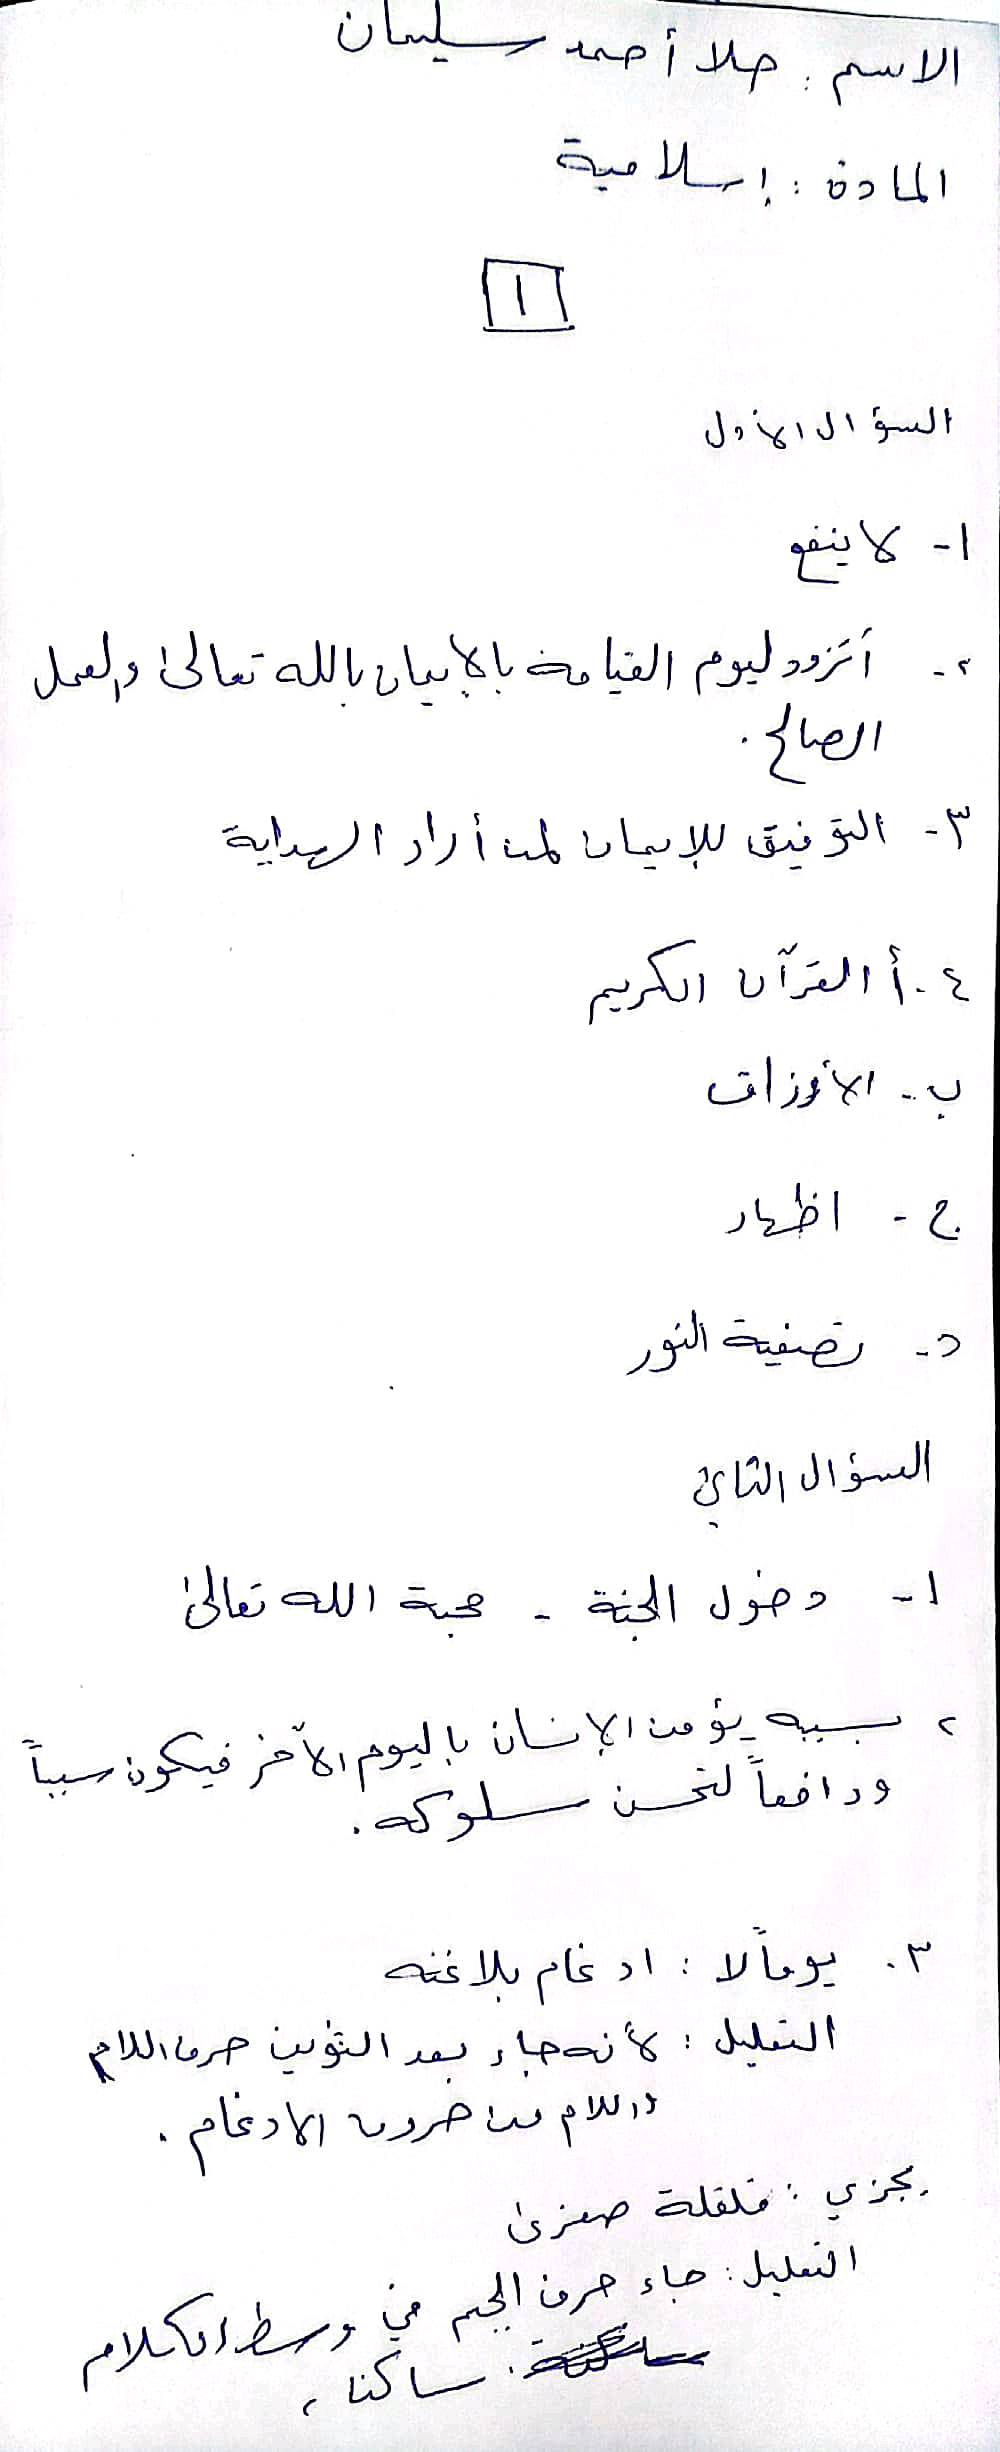 الاسم : حلا أحمد سليمان
المادة : إسلامية
١
السؤال الأول
١- لا ينفع
٢- أتزود ليوم القيامة بالإيمان بالله تعالى والعمل
الصالح .
٣- التوفيق للإيمان لمن أراد الهداية
٤. أ القرآن الكريم
ب- الأوزان
ج - اظهار
د- تصفية النور
السؤال الثاني
١- دخول الجنة - محبة الله تعالى
٢ بسببه يؤمن الإنسان باليوم الآخر فيكون سبباً
ودافعاً لتحسن سلوكه .
٣. يوماً لا : ادغام بلاغنه
التعليل : لأنه جاء بعد التنوين حرف اللام
واللام من حروف الادغام .
يجزي : قلقلة صغرى
التعليل : جاء حرف الجيم في وسط الكلام
ساكنا ،